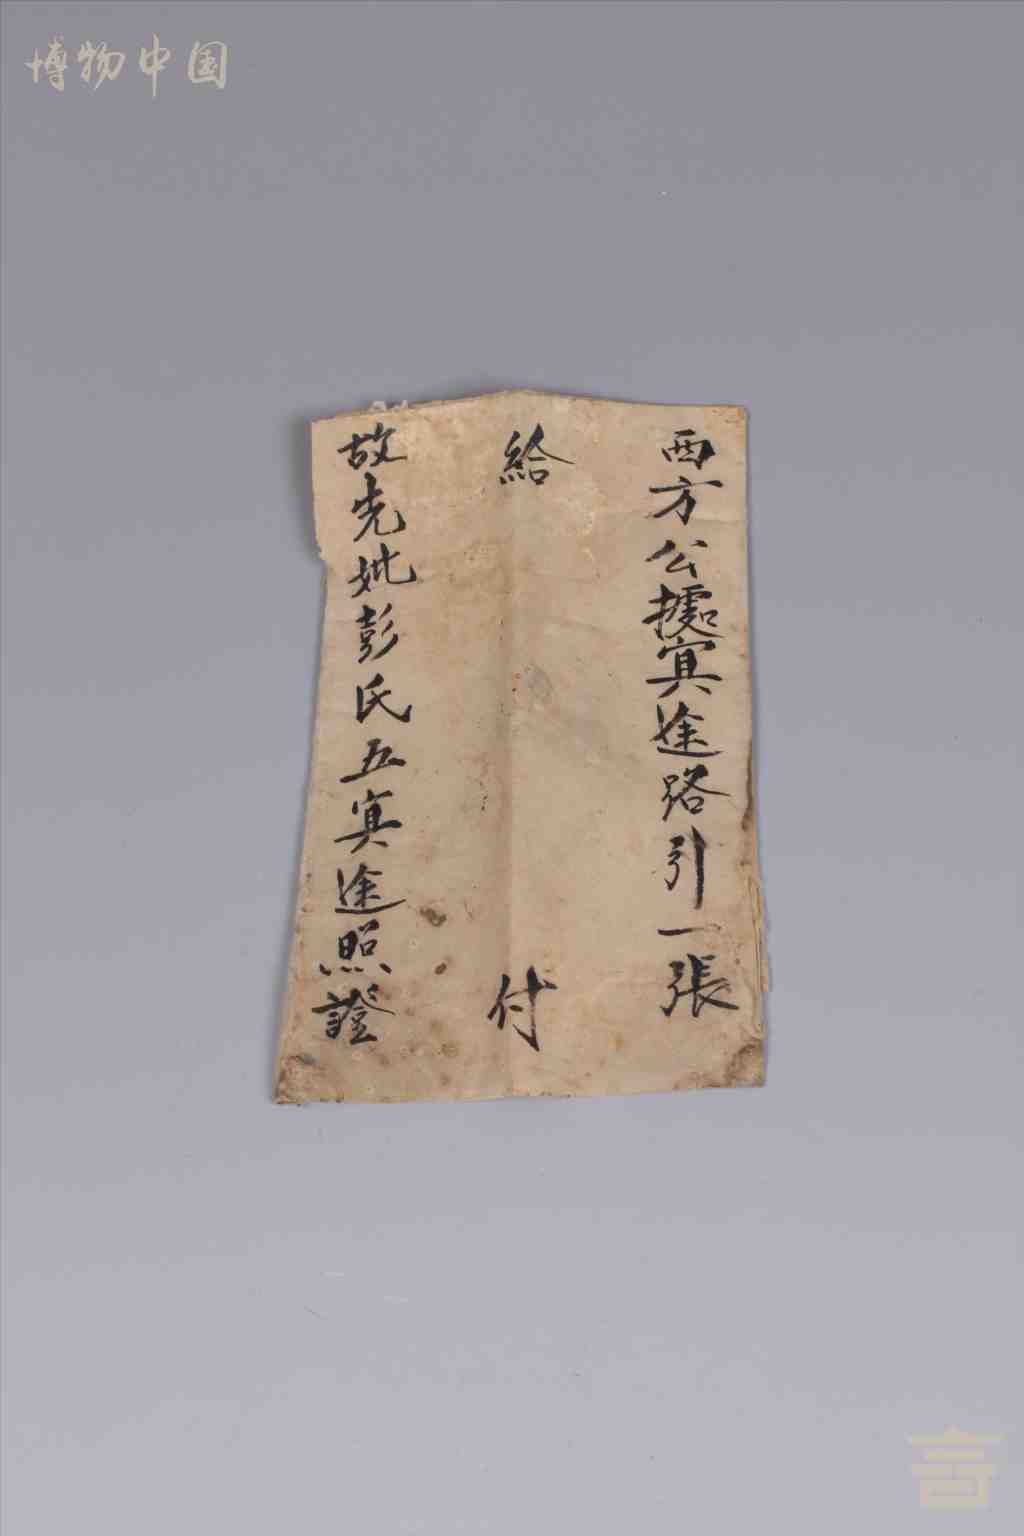 博物中国
西方公據冥途路引一張
給付
故先妣彭氏五冥途照證